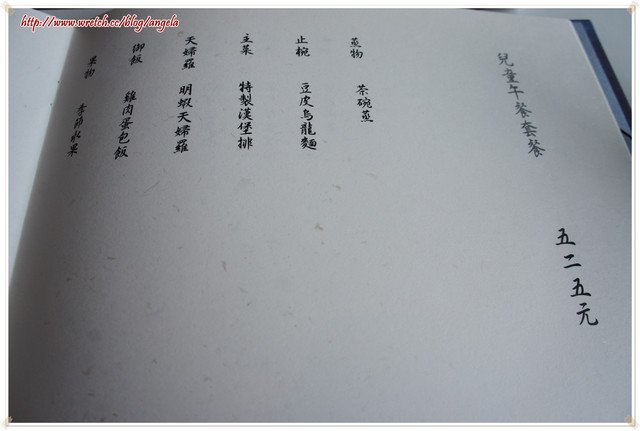 http://www.wretch.cc/blog/angela
兒童午餐套餐
五二五元
蒸物 茶碗蒸
止椀 豆皮烏龍麵
主菜 特製漢堡排
天婦羅 明蝦天婦羅
御飯 雞肉蛋包飯
果物 季節水果